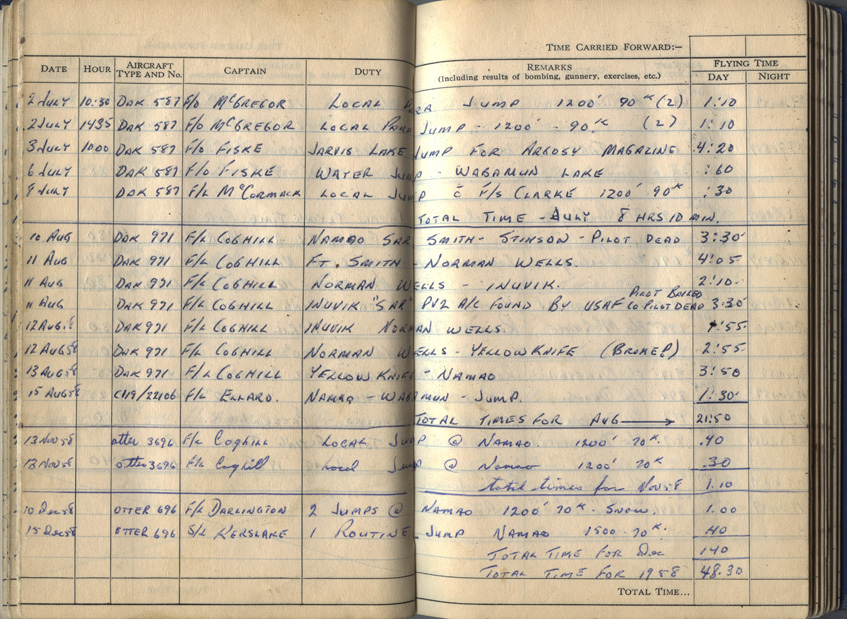 TIME CARRIED FORWARD:-
DATE HOUR AIRCRAFT TYPE AND No. CAPTAIN DUTY REMARKS (Including results of bombing, gunnery, exercises, etc.) FLYING TIME DAY NIGHT
2 JULY 10:30 DAK 587 F/O McGREGOR LOCAL PARA JUMP 1200' 90K (2) 1:10
2 JULY 1435 DAK 587 F/O McGREGOR LOCAL PARA JUMP - 1200' - 90K (2) 1:10
3 JULY 1000 DAK 587 F/O FISKE JARVIS LAKE JUMP FOR ARGOSY MAGAZINE 4:20
6 JULY DAK 587 F/O FISKE WATER JUMP - WABAMUN LAKE :60
9 JULY DAK 587 F/L McCORMACK LOCAL JUMP c̄ F/S CLARKE 1200' 90K :30
TOTAL TIME - JULY 8 HRS 10 MIN.
10 AUG DAK 971 F/L COGHILL NAMAO SAR SMITH - STINSON - PILOT DEAD 3:30
11 AUG DAK 971 F/L COGHILL FT. SMITH - NORMAN WELLS. 4:05
11 AUG DAK 971 F/L COGHILL NORMAN WELLS - INUVIK. 2:10
11 AUG DAK 971 F/L COGHILL INUVIK "SAR" PV2 A/C FOUND BY USAF PILOT BAILED CO PILOT DEAD 3:30
12 AUG 58 DAK 971 F/L COGHILL INUVIK NORMAN WELLS. :55
12 AUG 58 DAK 971 F/L COGHILL NORMAN WELLS - YELLOWKNIFE 2:55
13 AUG 58 DAK 971 F/L COGHILL YELLOWKNIFE - NAMAO 3:50
15 AUG 58 C119/22106 F/L ELLARD. NAMAO - WABAMUN - JUMP. 1:30
TOTAL TIMES FOR AUG → 21:50
13 NOV 58 otter 3696 F/L Coghill LOCAL JUMP @ NAMAO 1200' 70K .40
13 NOV 58 otter 3696 F/L Coghill Local Jump @ Namao 1200' 70K .30
total times for Nov 58 1.10
10 Dec 58 OTTER 696 F/L DARLINGTON 2 JUMPS @ NAMAO 1200' 70K - SNOW. 1.00
15 Dec 58 OTTER 696 S/L KERSLAKE 1 ROUTINE JUMP NAMAO 1500 - 70K. 40
TOTAL TIME FOR Dec 140
TOTAL TIME FOR 1958 48.30
TOTAL TIME...